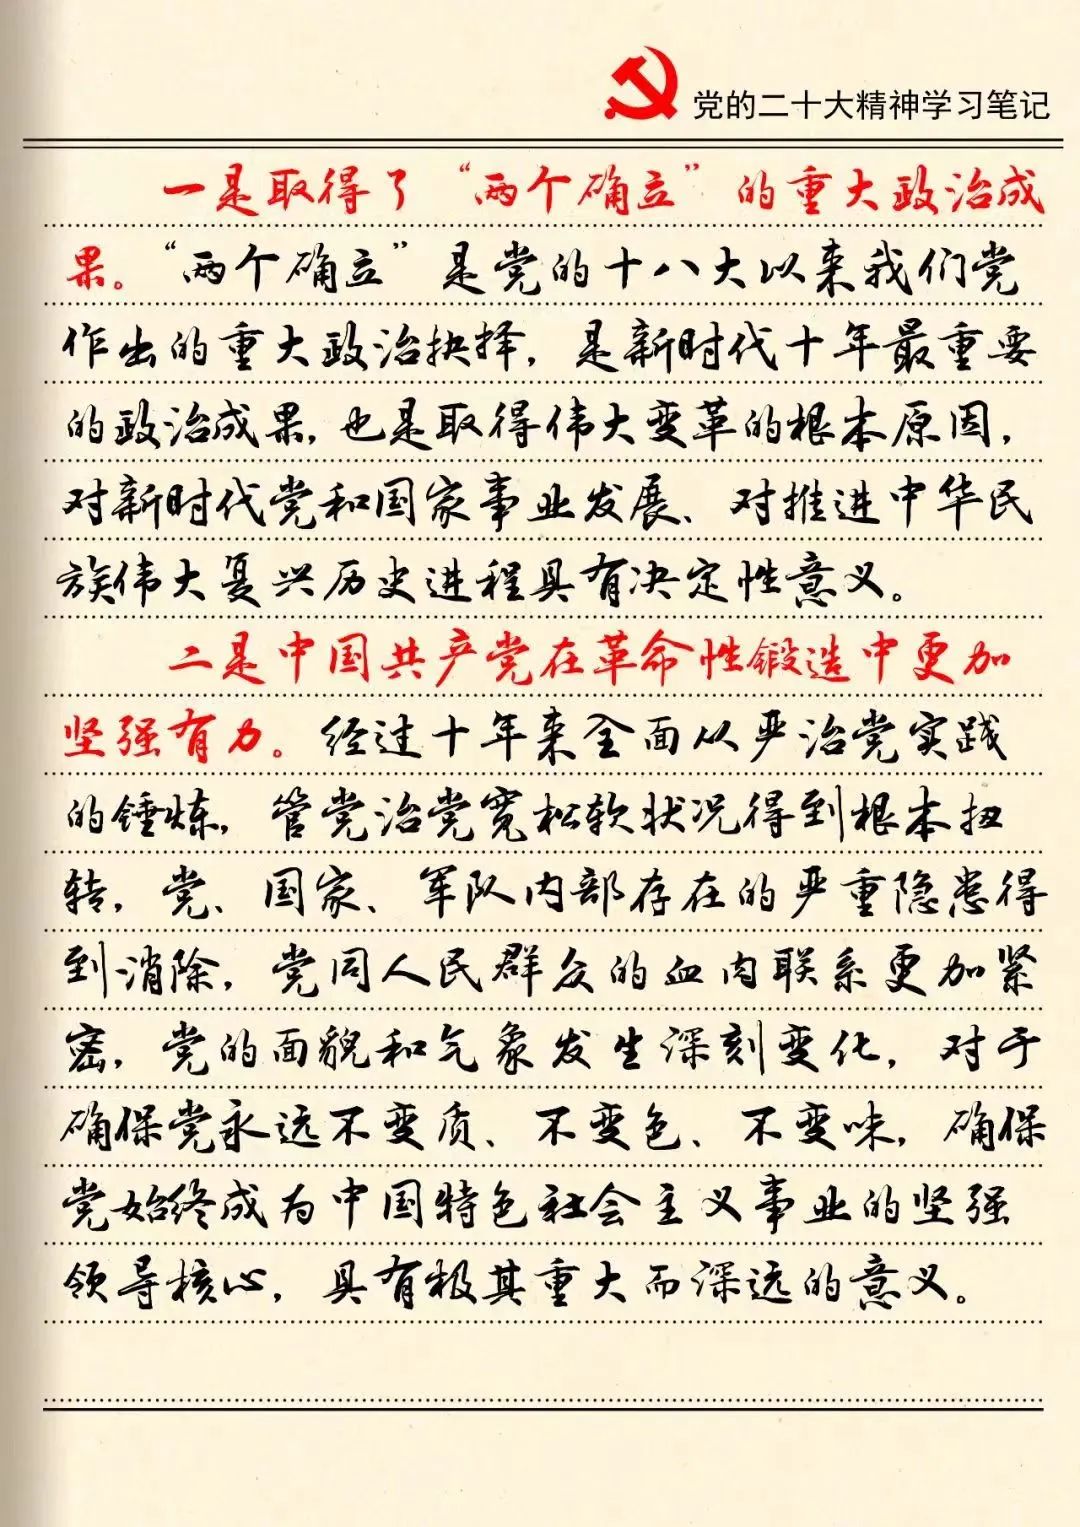 党的二十大精神学习笔记
一是取得了“两个确立”的重大政治成
果。“两个确立”是党的十八大以来我们党
作出的重大政治抉择，是新时代十年最重要
的政治成果，也是取得伟大变革的根本原因，
对新时代党和国家事业发展、对推进中华民
族伟大复兴历史进程具有决定性意义。
二是中国共产党在革命性锻造中更加
坚强有力。经过十年来全面从严治党实践
的锤炼，管党治党宽松软状况得到根本扭
转，党、国家、军队内部存在的严重隐患得
到消除，党同人民群众的血肉联系更加紧
密，党的面貌和气象发生深刻变化，对于
确保党永远不变质、不变色、不变味，确保
党始终成为中国特色社会主义事业的坚强
领导核心，具有极其重大而深远的意义。